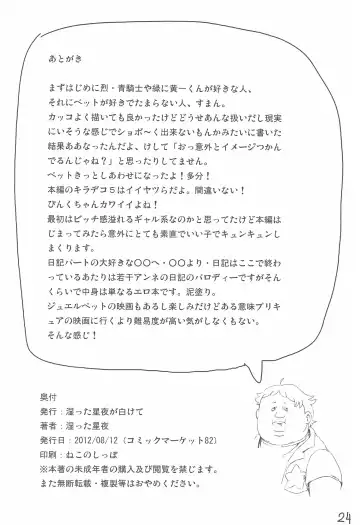 あとがき
まずはじめに烈・青騎士や緑に黄一くんが好きな人、
それにペットが好きでたまらない人、すまん。
カッコよく描いても良かったけどどうせあんな扱いだし現実
にいそうな感じでショボ～く出来ないもんかみたいに書いた
結果ああなったんだよ、けして「おっ意外とイメージつかん
でるんじゃね？」と思ったりしてません。
ペットきっとしあわせになったよ！多分！
本編のキラデコ５はイイヤツらだよ。間違いない！
ぴんくちゃんカワイイよね！
最初はビッチ感溢れるギャル系なのかと思ってたけど本編は
じまってみたら意外にとても素直でいい子でキュンキュンし
まくります。
日記パートの大好きな〇〇へ・〇〇より・日記はここで終わ
っているあたりは若干アンネの日記のパロディーですがそん
くらいで中身は単なるエロ本です。泥塗り。
ジュエルペットの映画もあるし楽しみだけどある意味プリキ
ュアの映画に行くより難易度が高い気がしなくもない。
そんな感じ！
奥付
発行：淫った星夜が白けて
著者：淫った星夜
発行日：2012/08/12（コミックマーケット82）
印刷：ねこのしっぽ
※本著の未成年者の購入及び閲覧を禁じます。
また無断転載・複製等はおやめください。
24